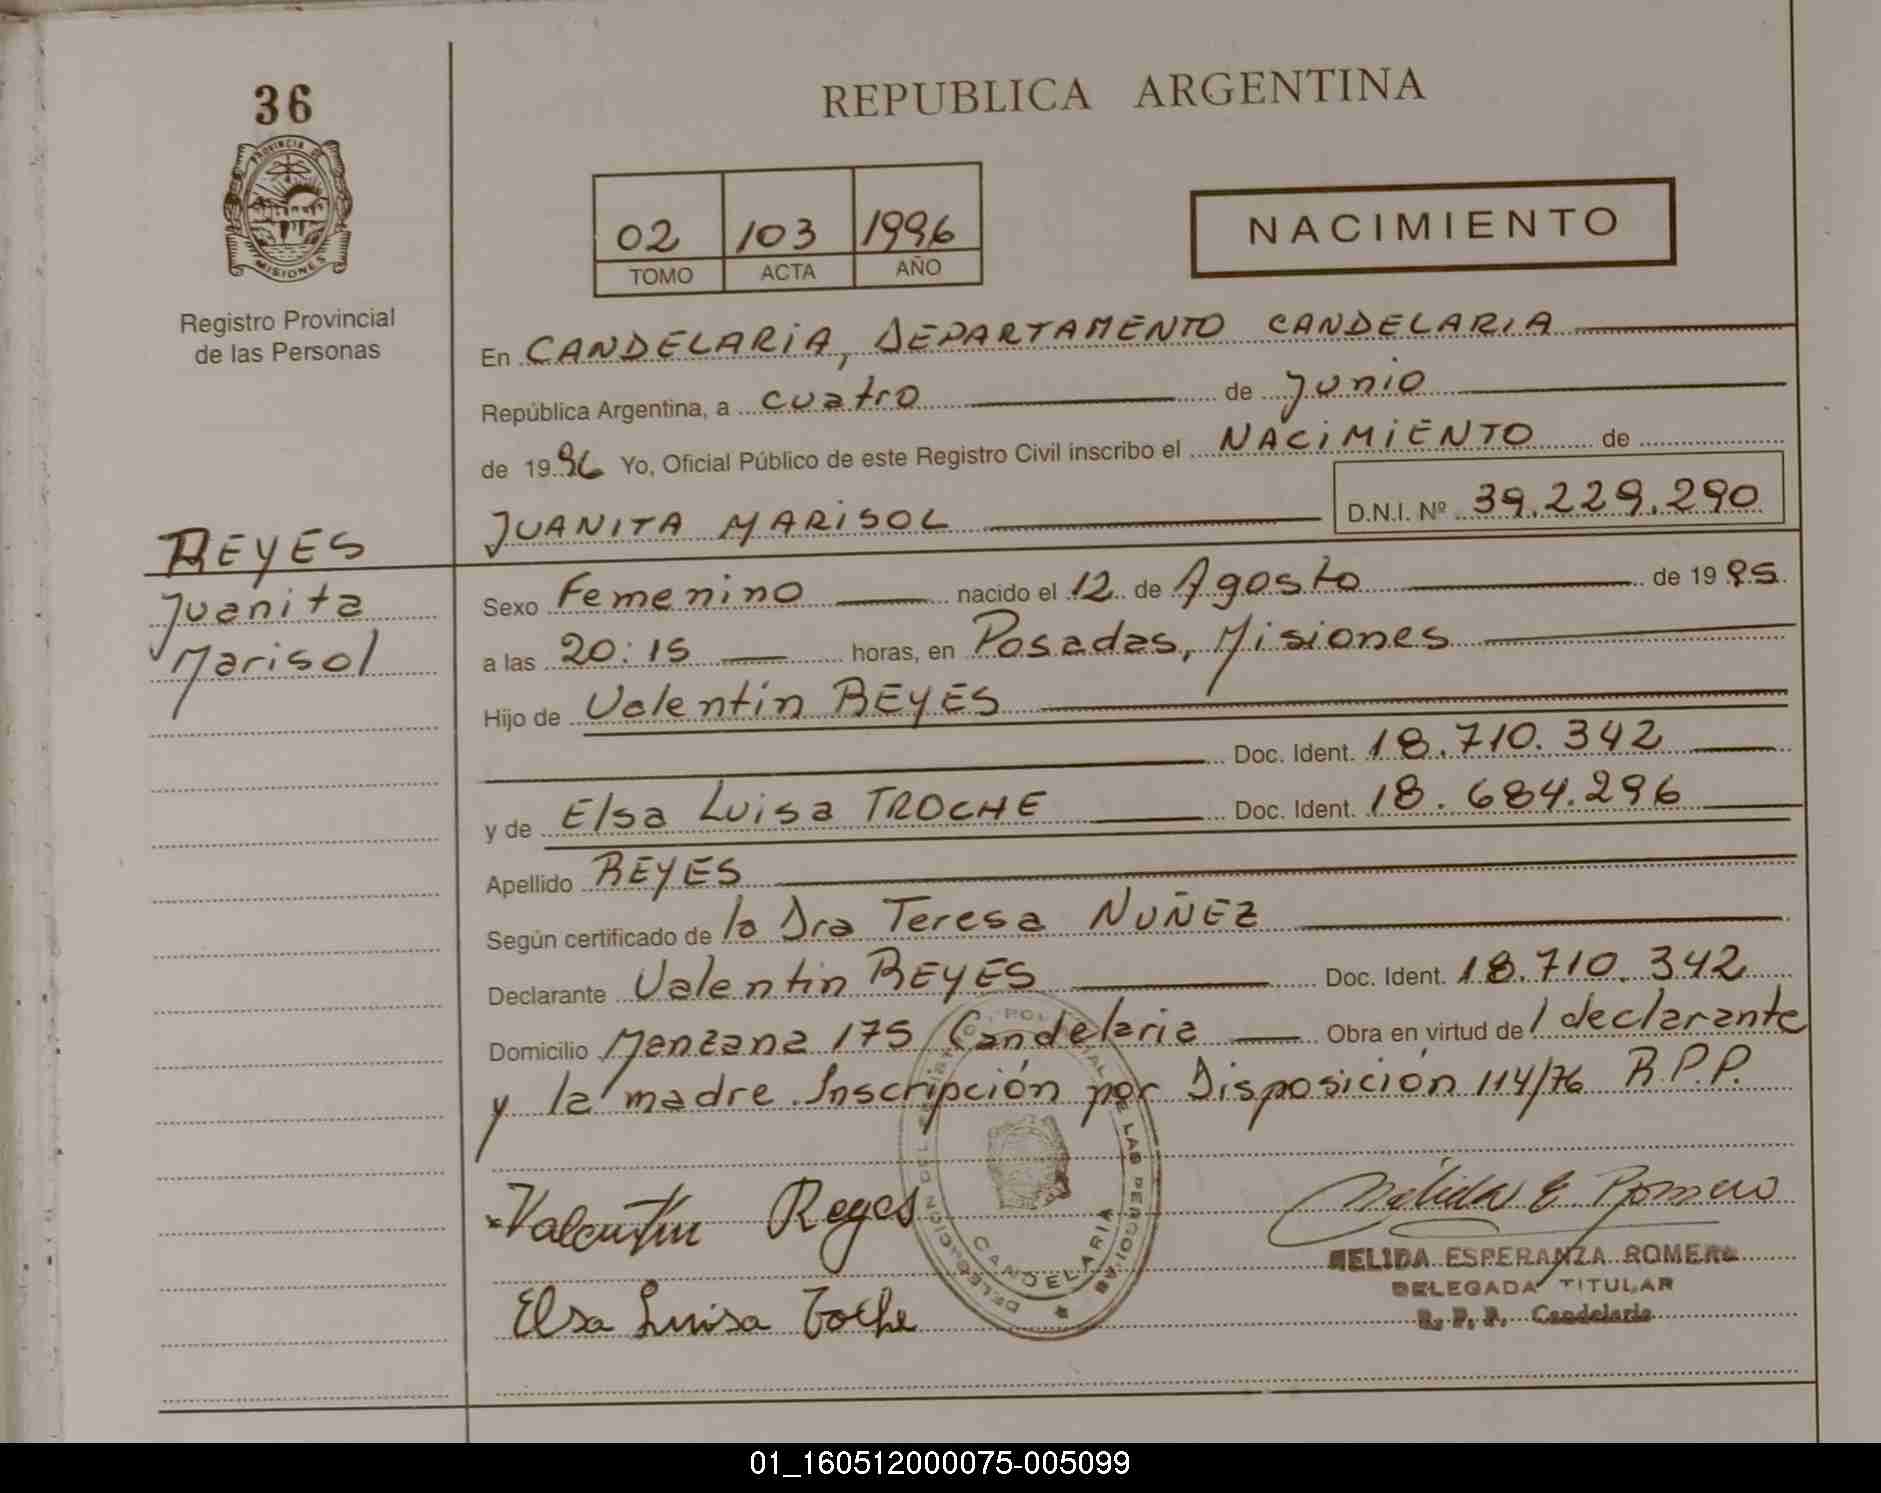 36
PROVINCIA DE
MISIONES
Registro Provincial
de las Personas
REYES
Juanita
Marisol
REPUBLICA ARGENTINA
02 103 1996
TOMO ACTA AÑO
NACIMIENTO
En CANDELARIA, DEPARTAMENTO CANDELARIA
República Argentina, a cuatro de junio
de 1996 Yo, Oficial Público de este Registro Civil inscribo el NACIMIENTO de
JUANITA MARISOL D.N.I. Nº 39.229.290
Sexo Femenino nacido el 12 de Agosto de 1995
a las 20:15 horas, en Posadas, Misiones
Hijo de Valentín REYES
Doc. Ident. 18.710.342
y de Elsa Luisa TROCHE Doc. Ident. 18.684.296
Apellido REYES
Según certificado de la Dra Teresa NUÑEZ
Declarante Valentin REYES Doc. Ident. 18.710.342
Domicilio Manzana 175 Candelaria Obra en virtud de l declarante
y la madre. Inscripción por Disposición 114/76 R.P.P.
Valentin Reyes
Nélida E Romero
NELIDA ESPERANZA ROMERO
DELEGADA TITULAR
R. P. P. Candelaria
Elsa Luisa Toche
CANDELARIA
01_160512000075-005099